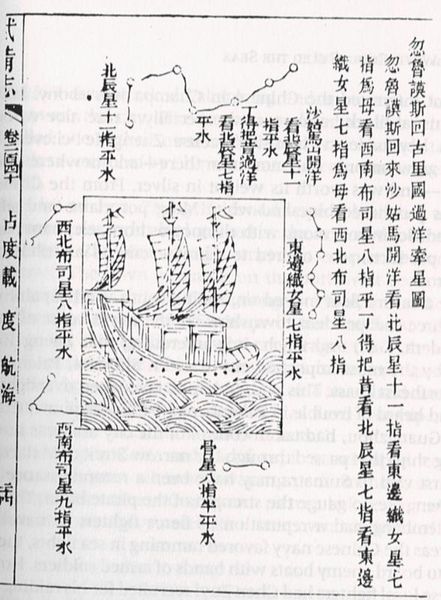 忽魯謨斯回古里國過洋牽星圖
忽魯謨斯來沙姑馬開洋看北辰星十一指看東邊織女星七
指爲母看西南布司星八指平丁得把昔看北辰星七指看東邊
織女星七指爲母看西北布司星八指
沙姑馬開洋
看北辰星十一
指平水
丁得把昔過洋
看北辰星七指
平水
北辰星十一指平水
東邊織女星七指平水
西北布司星八指平水
骨星八指半平水
西南布司星九指平水
武備志
占度載 度 航海